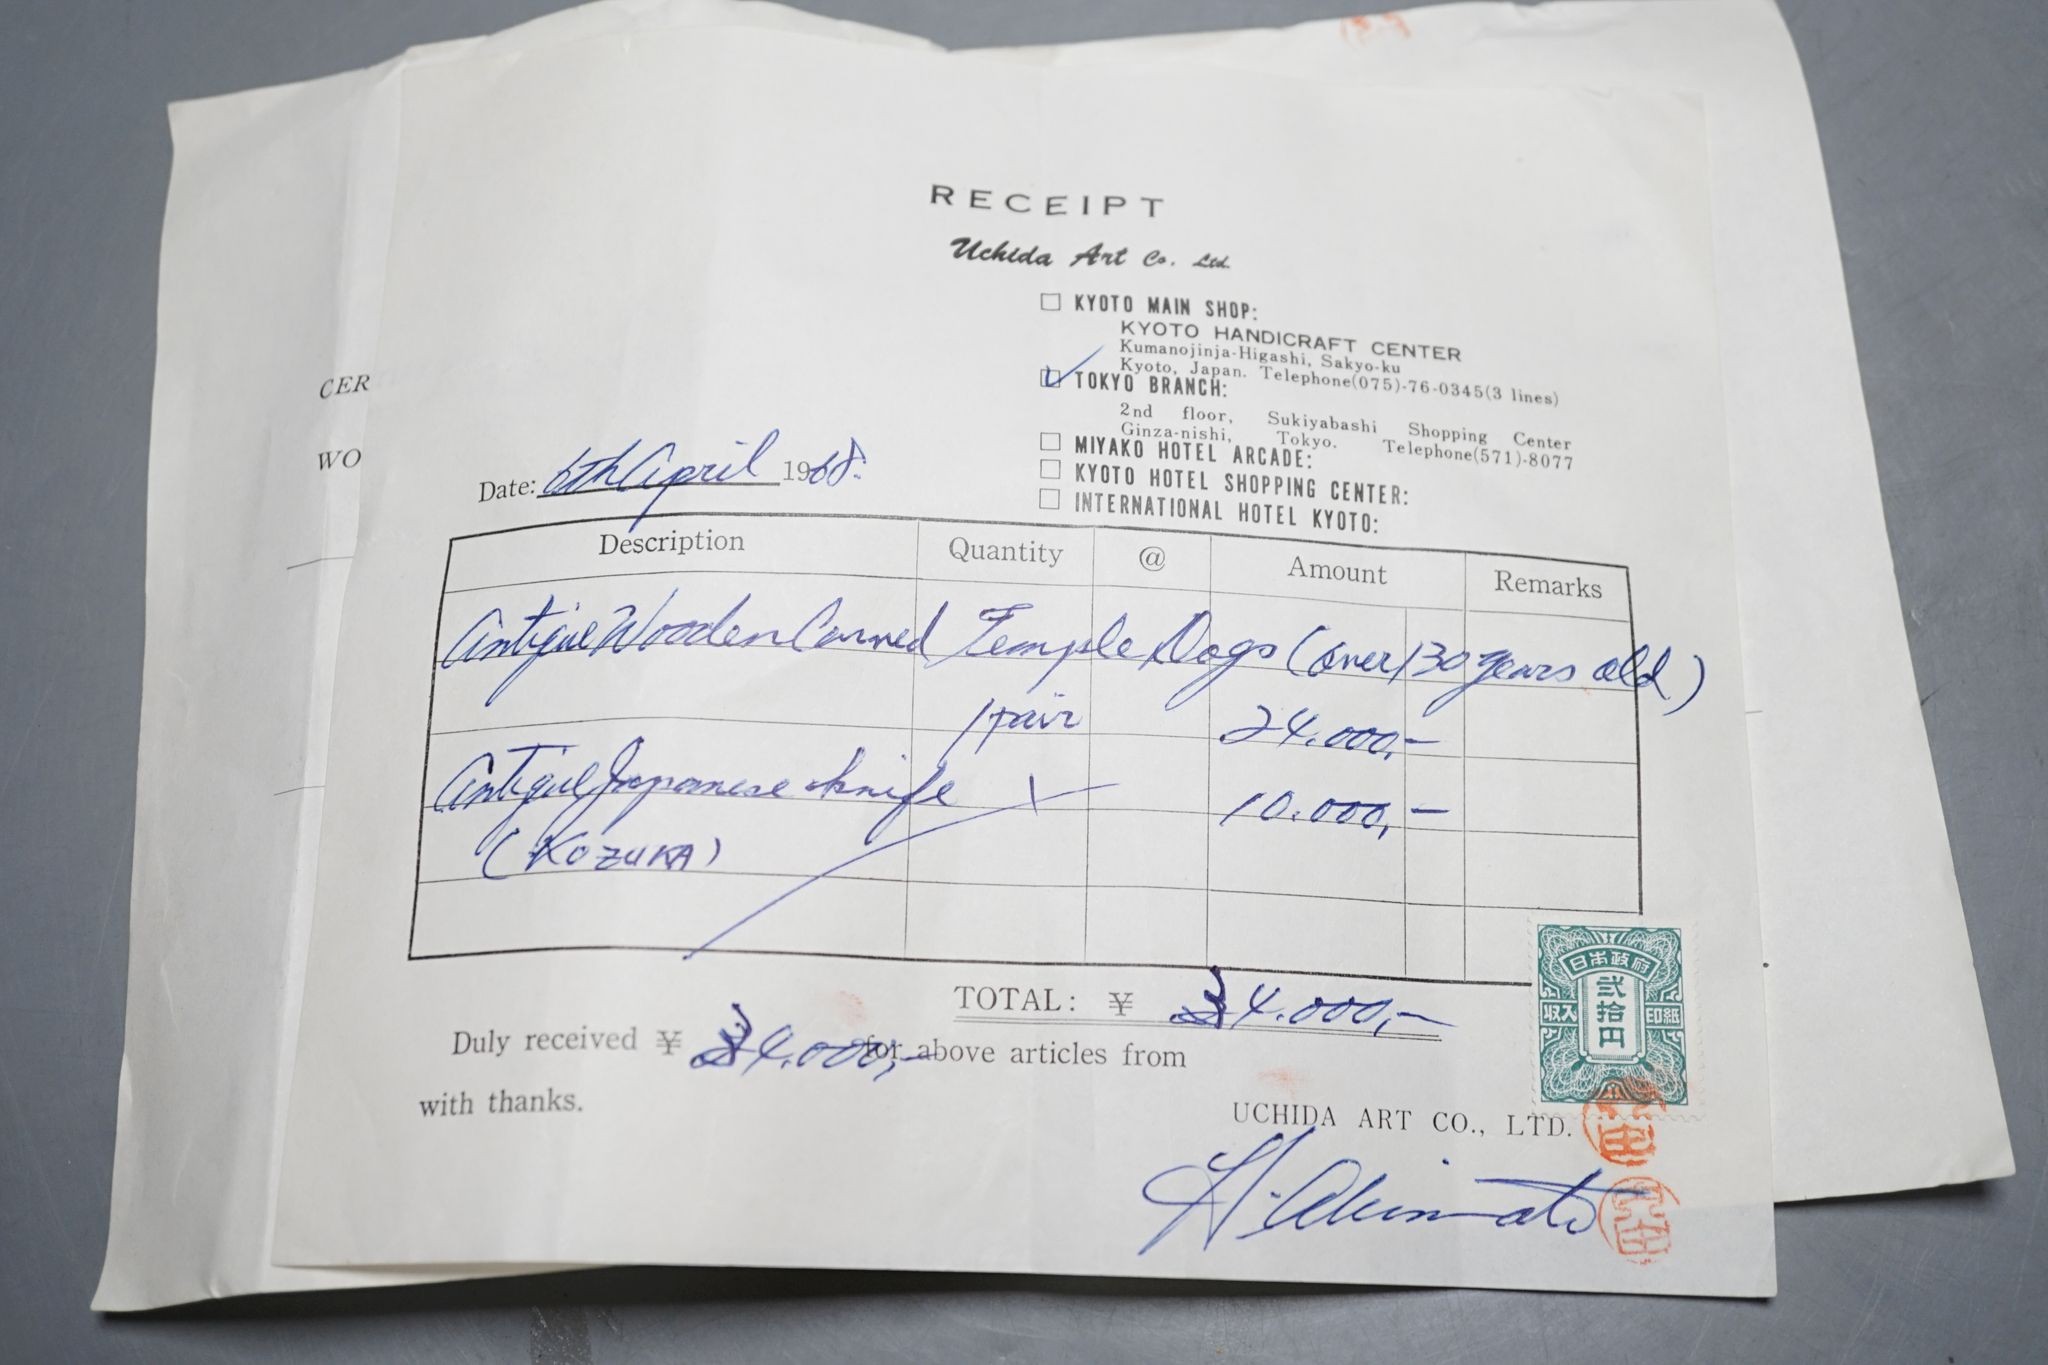 RECEIPT
Uchida Art Co. Ltd.
□ KYOTO MAIN SHOP:
KYOTO HANDICRAFT CENTER
Kumanojinja-Higashi, Sakyo-ku
Kyoto, Japan. Telephone(075)-76-0345(3 lines)
☑ TOKYO BRANCH:
2nd floor, Sukiyabashi Shopping Center
Ginza-nishi, Tokyo. Telephone(571)-8077
□ MIYAKO HOTEL ARCADE:
□ KYOTO HOTEL SHOPPING CENTER:
□ INTERNATIONAL HOTEL KYOTO:
CER
WO
Date: 6th April 1968.
Description Quantity @ Amount Remarks
Antique Wooden Carved Temple Dogs (over 130 years old)
1 pair 24.000,-
Antique Japanese knife 1 10.000,-
(KOZUKA)
TOTAL: ¥ 34.000,-
Duly received ¥ 34.000,- for above articles from
with thanks.
日本政府
弐拾円
収入印紙
UCHIDA ART CO., LTD.
H. Akimoto